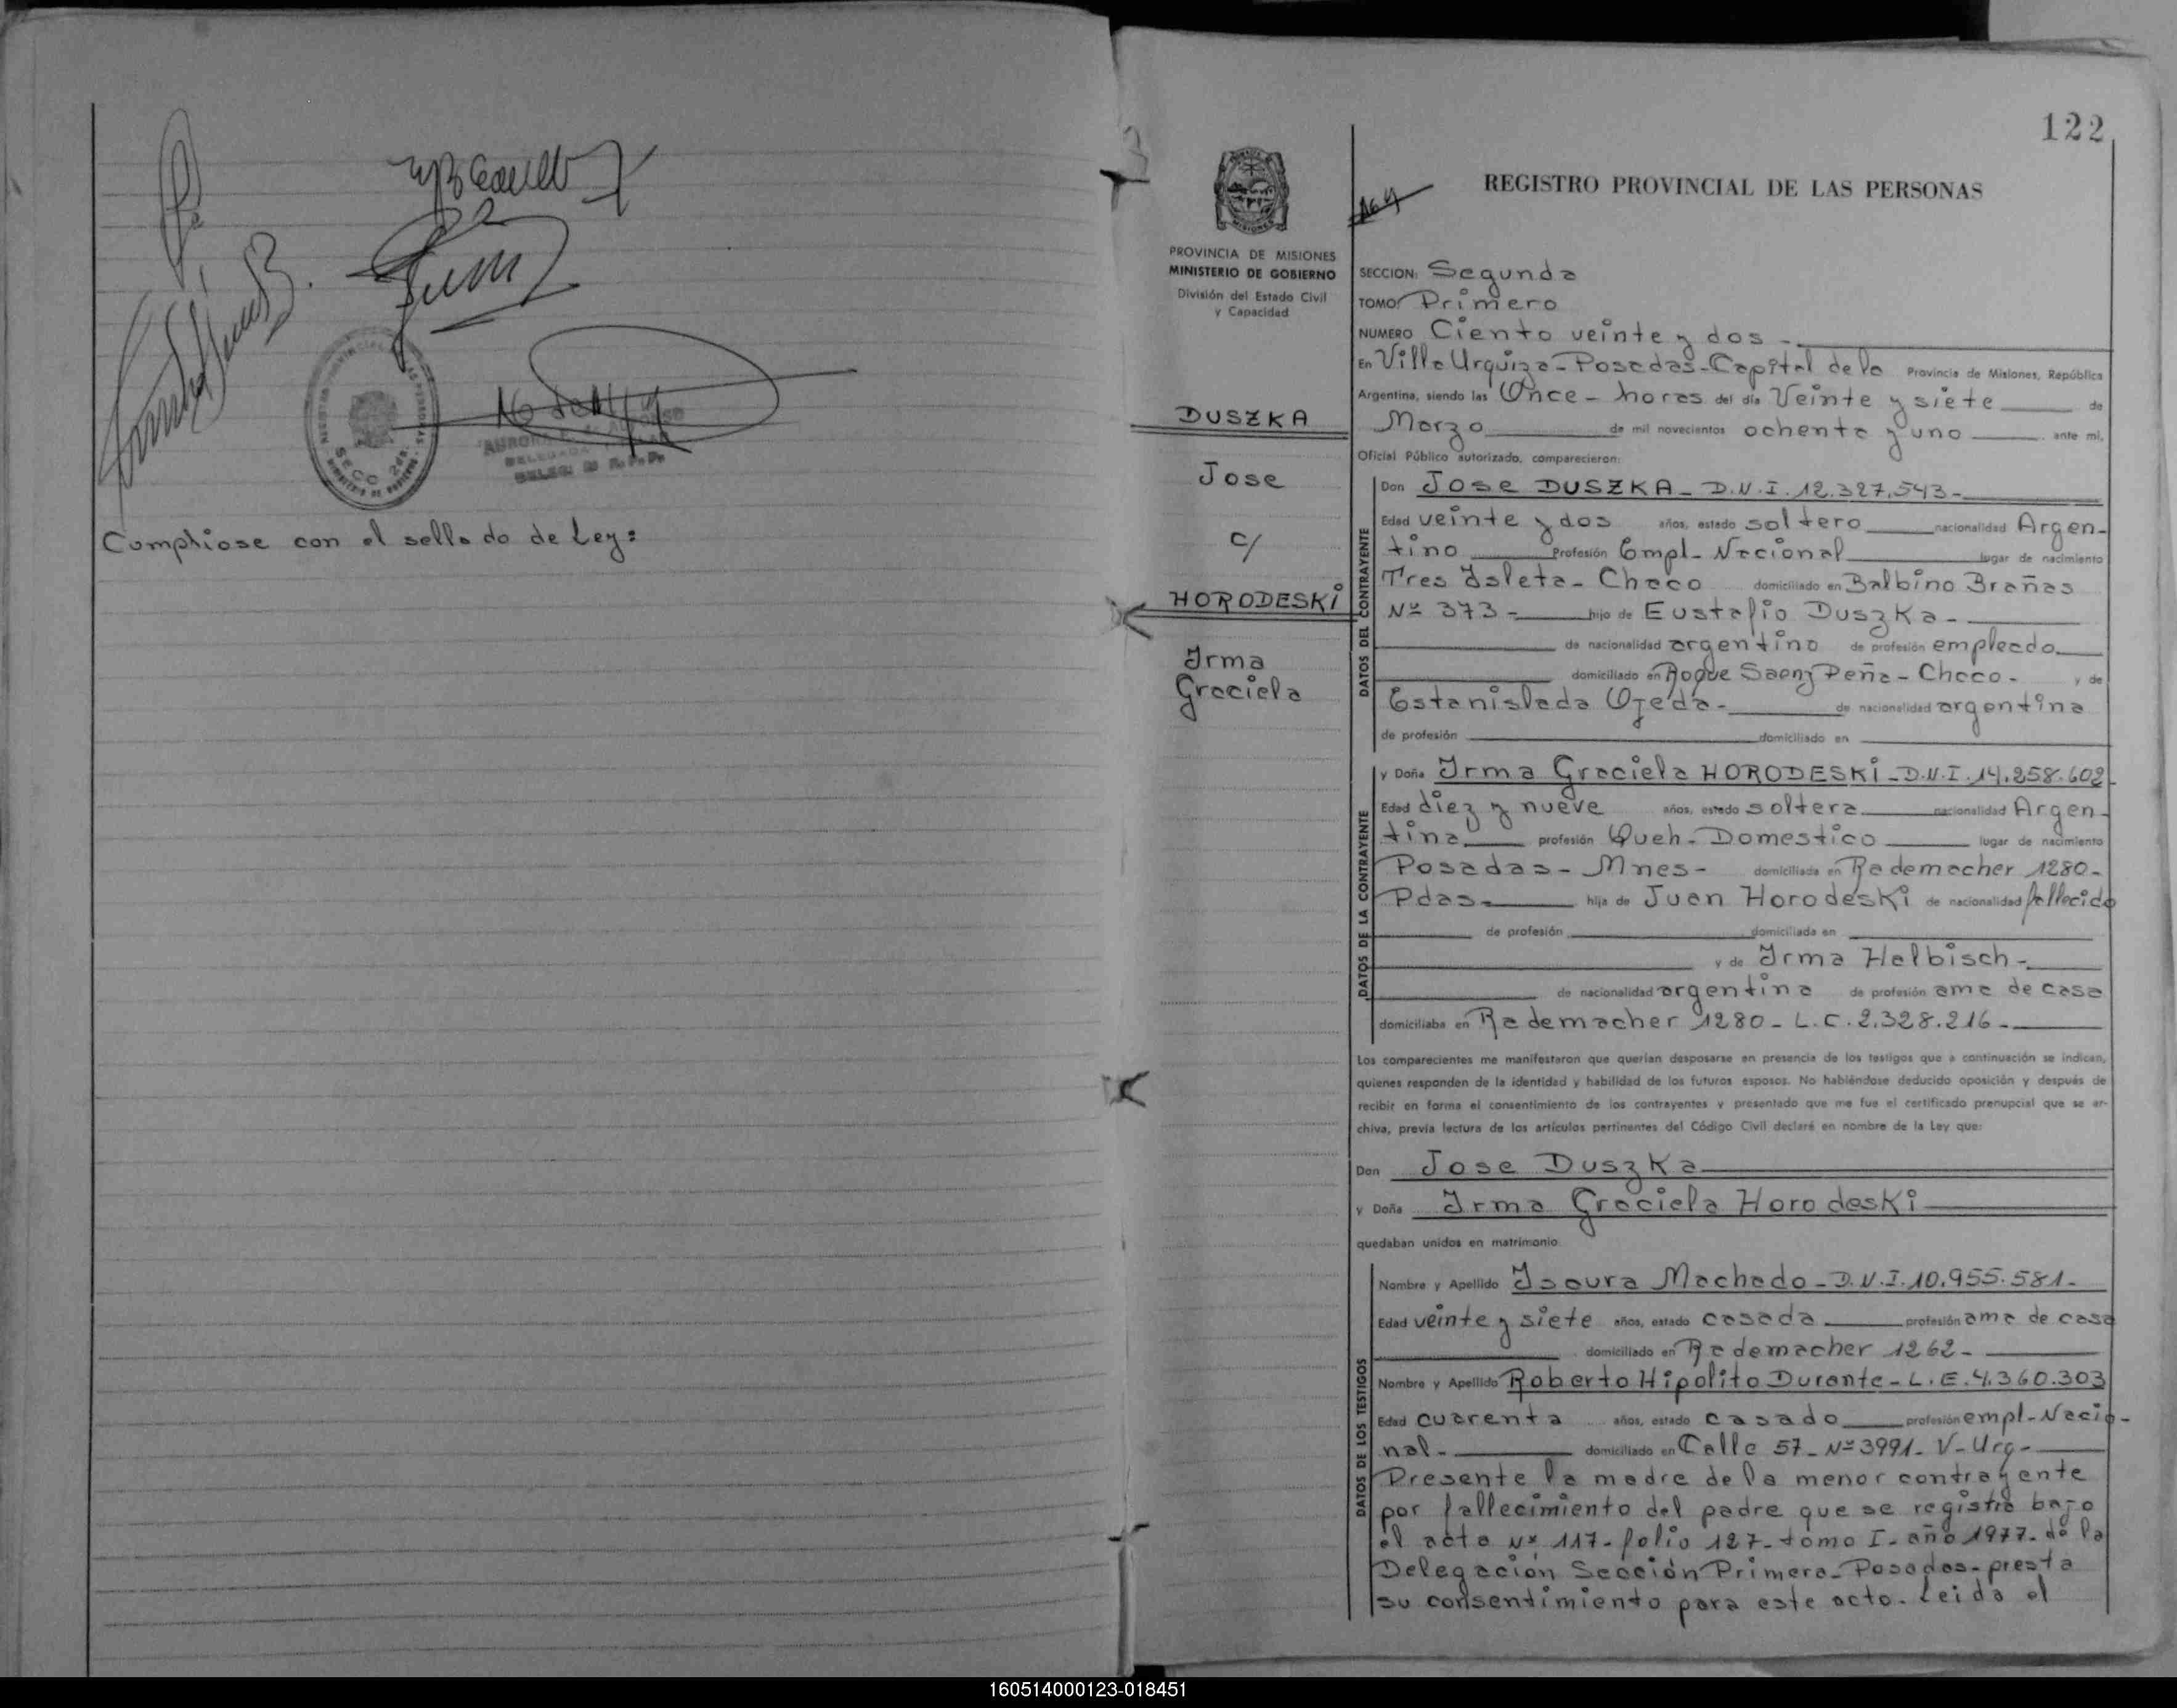 Cumpliose con el sellado de Ley:
SECC 2da.
122
PROVINCIA DE MISIONES
MINISTERIO DE GOBIERNO
División del Estado Civil
y Capacidad
DUSZKA
Jose
c/
HORODESKi
Irma
Graciela
REGISTRO PROVINCIAL DE LAS PERSONAS
SECCION: Segunda
TOMO: Primero
NUMERO Ciento veinte y dos -
En Villa Urquiza - Posadas - Capital de la Provincia de Misiones, República
Argentina, siendo las Once - horas del día Veinte y siete de
Marzo de mil novecientos ochenta y uno ante mi,
Oficial Público autorizado, comparecieron:
DATOS DEL CONTRAYENTE
Don Jose DUSZKA - D.N.I. 12.327.543 -
Edad veinte y dos años, estado soltero nacionalidad Argen-
tino Profesión Empl - Nacional lugar de nacimiento
Tres Isleta - Chaco domiciliado en Balbino Brañas
Nº 373 - hijo de Eustafio Duszka -
de nacionalidad argentino de profesión empleado
domiciliado en Roque Saenz Peña - Chaco - y de
Estanislada Ojeda - de nacionalidad argentina
de profesión domiciliado en
DATOS DE LA CONTRAYENTE
y Doña Irma Graciela HORODESKi - D.N.I. 14.258.602 -
Edad diez y nueve años, estado soltera nacionalidad Argen-
tina profesión Queh - Domestico lugar de nacimiento
Posadas - Mnes - domiciliada en Rademacher 1280 -
Pdas - hija de Juan Horodeski de nacionalidad fallecido
de profesión domiciliada en
y de Irma Helbisch -
de nacionalidad argentina de profesión ama de casa
domiciliaba en Rademacher 1280 - L.C. 2.328.216 -
Los comparecientes me manifestaron que querían desposarse en presencia de los testigos que a continuación se indican,
quienes responden de la identidad y habilidad de los futuros esposos. No habiéndose deducido oposición y después de
recibir en forma el consentimiento de los contrayentes y presentado que me fue el certificado prenupcial que se ar-
chiva, previa lectura de los artículos pertinentes del Código Civil declaré en nombre de la Ley que:
Don Jose Duszka
y Doña Irma Graciela Horodeski
quedaban unidos en matrimonio
DATOS DE LOS TESTIGOS
Nombre y Apellido Isaura Machado - D.N.I. 10.955.581 -
Edad veinte y siete años, estado casada profesión ama de casa
domiciliado en Rademacher 1262 -
Nombre y Apellido Roberto Hipolito Durante - L.E. 4.360.303
Edad cuarenta años, estado casado profesión empl - Nacio-
nal - domiciliado en Calle 57 - Nº 3991 - V - Urq -
Presente la madre de la menor contrayente
por fallecimiento del padre que se registró bajo
el acta Nº 117 - folio 127 - tomo I - año 1977 - de la
Delegación Sección Primera - Posadas - presta
su consentimiento para este acto - Leida el
160514000123-018451